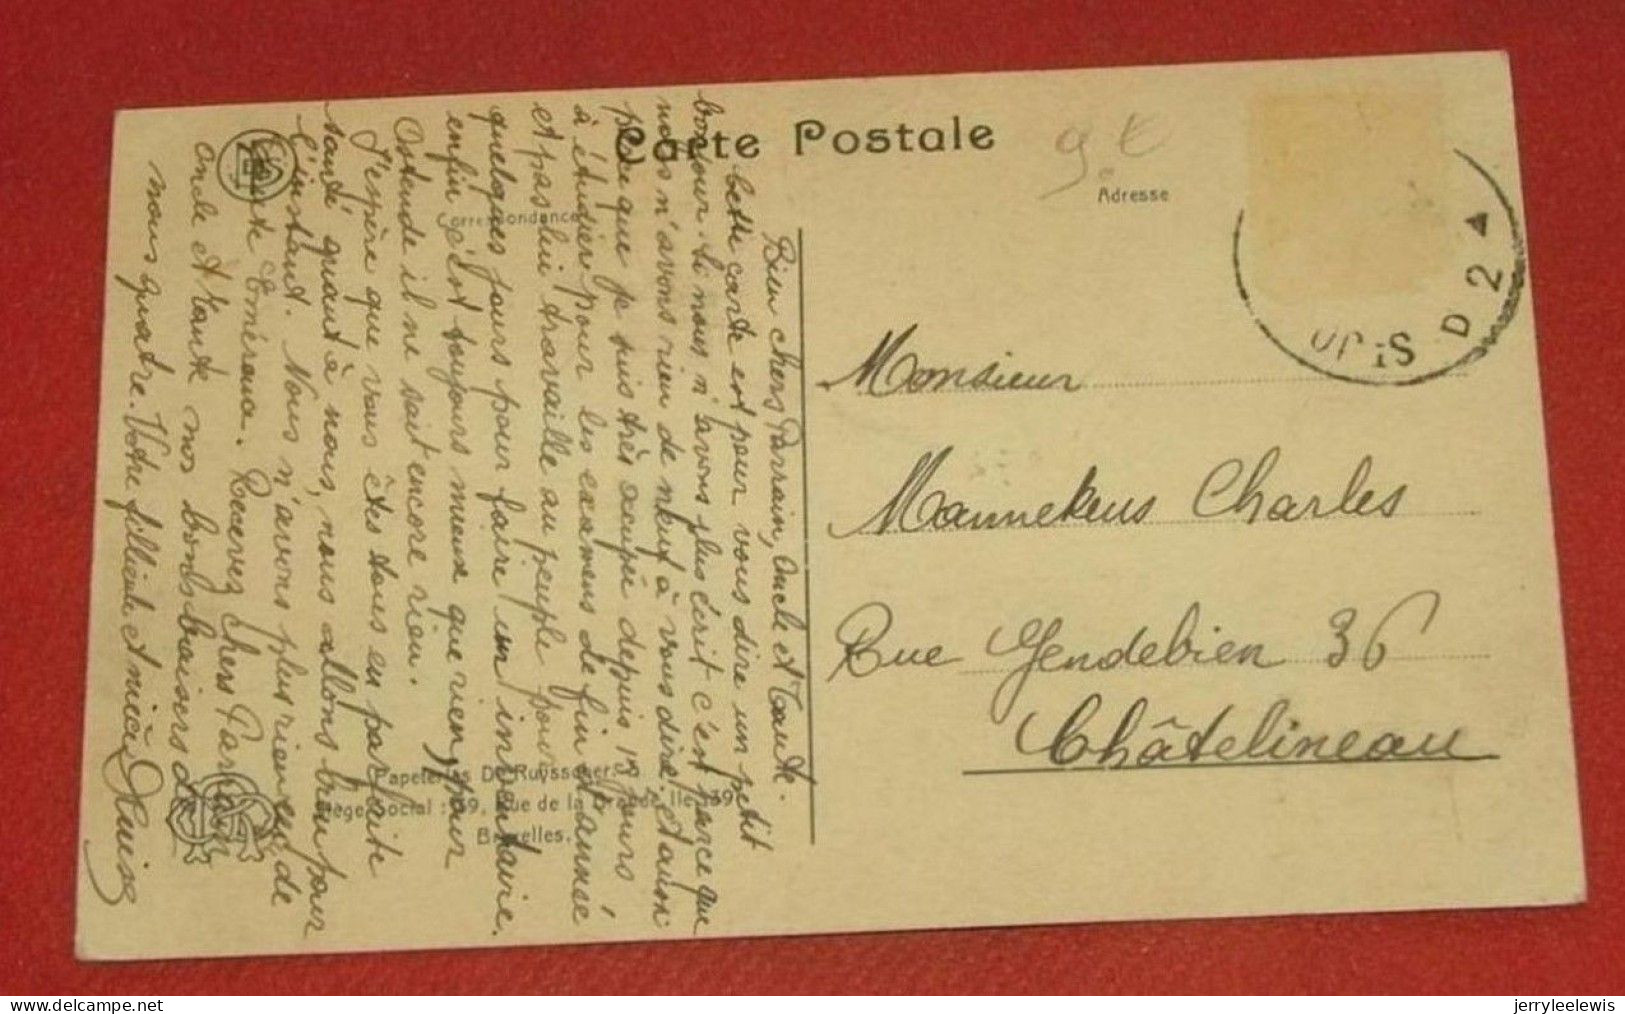 Carte Postale
9 €
Adresse
Correspondance
D 2
Monsieur
Mannekens Charles
Rue Gendebien 36
Châtelineau
Bien chers Parrain, Oncle et Tante.
Cette carte est pour vous dire un petit
bonjour. Si nous n'avons plus écrit c'est parce que
nous n'avons rien de neuf à vous dire. Et aussi
que je suis très occupée depuis 15 jours
à étudier pour les examens de fin d'année
et papa lui travaille au peuple pour
quelques jours pour faire un inventaire.
enfin c'est toujours mieux que rien, pour
Ostende il ne sait encore rien.
J'espère que vous êtes tous en parfaite
santé quant à nous, nous allons bien pour
l'instant. Nous n'avons plus rien eu de
tante Emérence. Recevez chers Parrain
oncle et Tante nos bons baisers de
nous quatre. Votre filleule et nièce
Papeteries De Ruysscher
Siège Social : 39, Rue de la Grande Ile, 39
Bruxelles.
delcampe.net
jerryleelewis